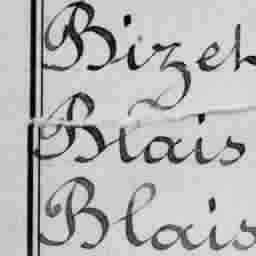 Bizet
Blais
Blais